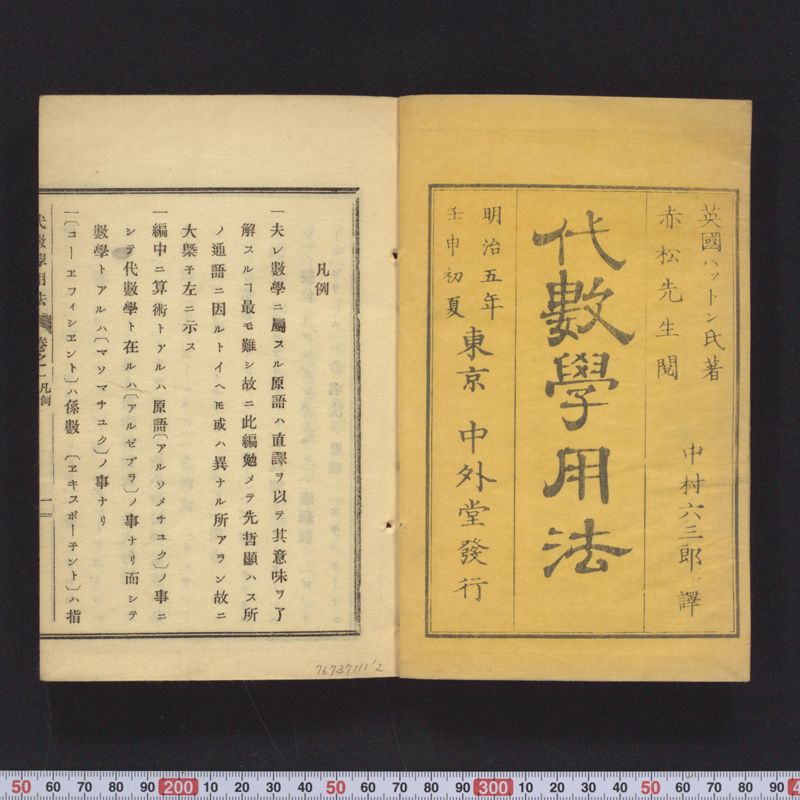 英國ハットン氏著
赤松先生閲
中村六三郎 譯
代數學用法
明治五年
壬申初夏
東京 中外堂發行
凡例
一夫レ數學ニ屬スル原語ハ直譯ヲ以テ其意味ヲ了
解スルヿ最モ難シ故ニ此編勉メテ先哲顯ハス所
ノ通語ニ因ルトイヘモ或ハ異ナル所アラン故ニ
大槩ヲ左ニ示ス
一編中ニ算術トアルハ原語〔アルソメチユク〕ノ事ニ
シテ代數學ト在ルハ〔アルゼブラ〕ノ事ナリ而シテ
數學トアルハ〔マソマチユク〕ノ事ナリ
一〔コーヱフィシヱント〕ハ係數〔ヱキスポーテント〕ハ指
代數學用法 卷之一凡例 一
76737111'2
50 60 70 80 90 200 10 20 30 40 50 60 70 80 90 300 10 20 30 40 50 60 70 80 90